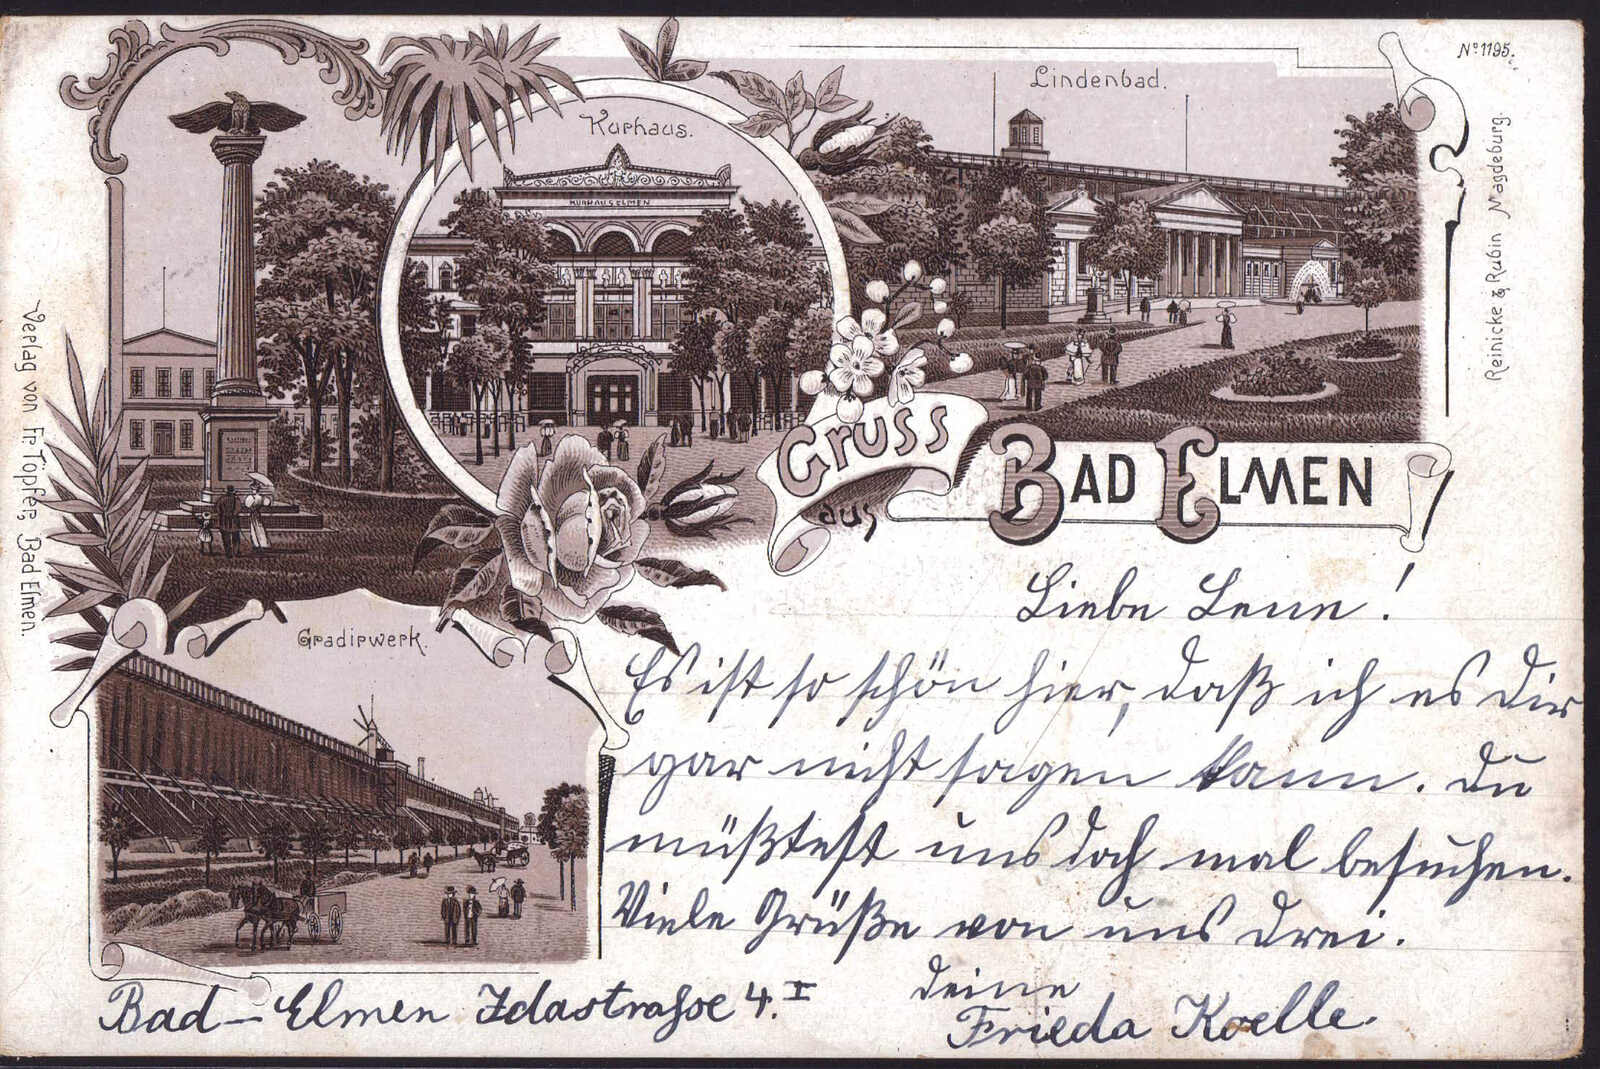 Nº 1195.
Lindenbad.
Kurhaus.
KURHAUS ELMEN
Reinicke & Rubin Magdeburg.
Verlag von Fr. Töpfer, Bad Elmen.
Gruss
aus
BAD ELMEN
Gradirwerk.
Liebe Lene!
Es ist so schön hier, daß ich es Dir
gar nicht sagen kann. Du
müßtest uns doch mal besuchen.
Viele Grüße von uns drei.
Deine
Frieda Koelle.
Bad-Elmen Idastraſse 4. I